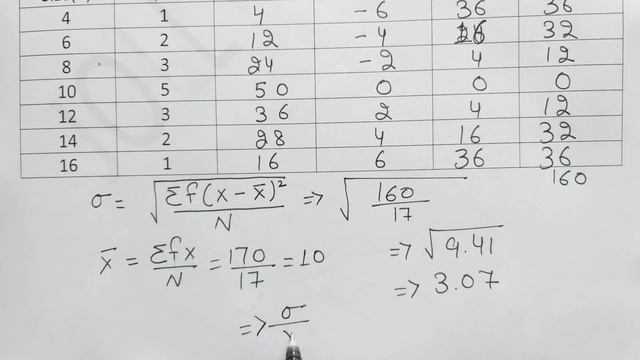 4 1 4 -6 36 36
6 2 12 -4 16 32
8 3 24 -2 4 12
10 5 50 0 0 0
12 3 36 2 4 12
14 2 28 4 16 32
16 1 16 6 36 36
160
σ = √Σf(x-x̄)²/N => √160/17
x̄ = Σfx/N = 170/17 = 10
=> √9.41
=> 3.07
=> σ